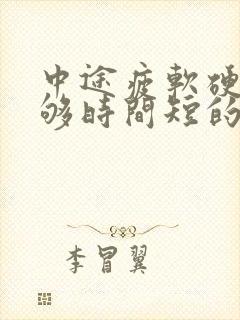 中途疲軟硬
够時間短的
李冒翼